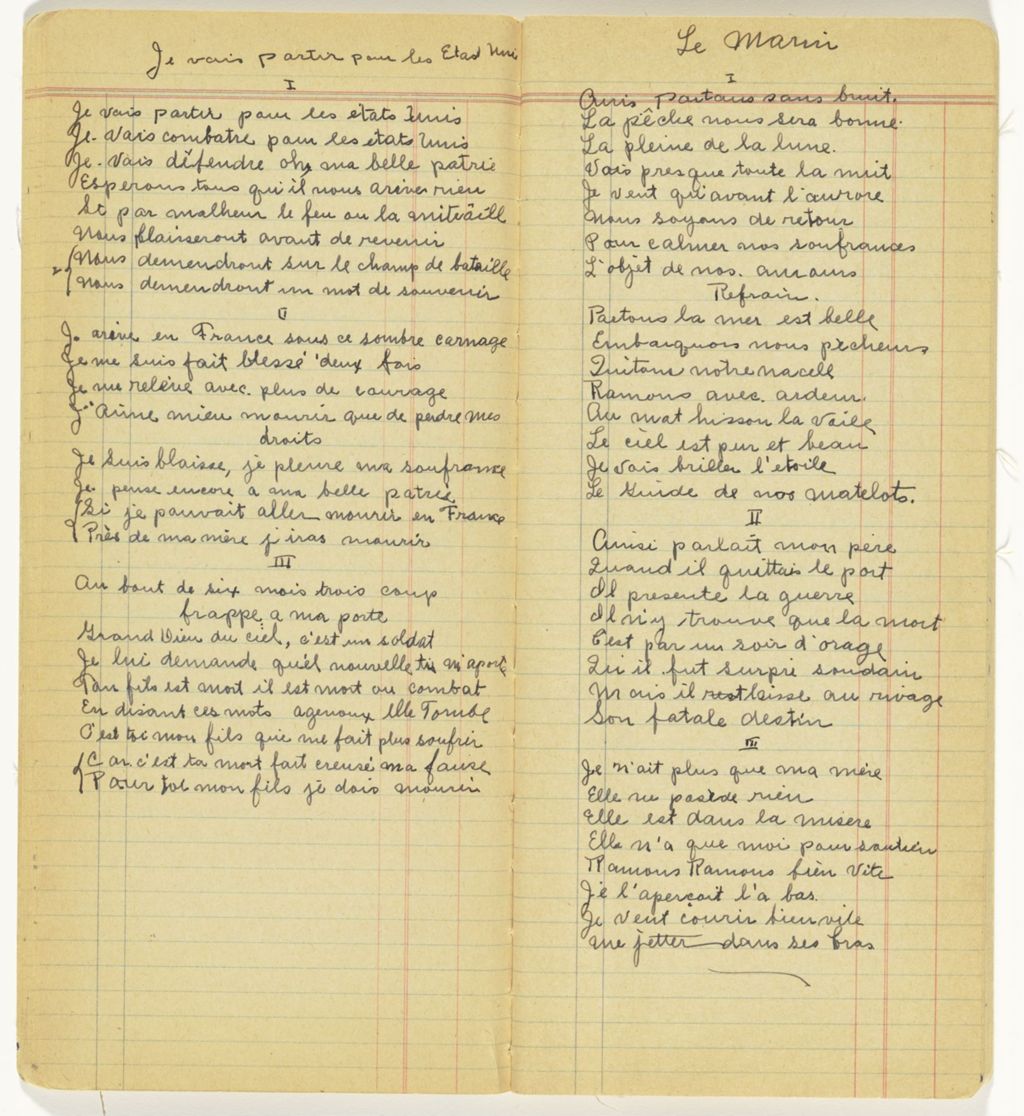 Je vais partir pour les Etas Unis
I
Je vais partir pour les états Unis
Je vais combatre pour les états Unis
Je vais défendre oh ma belle patrie
Esperons tous qu'il nous arive rien
Si par malheur le feu ou la mitràille
Nous blaisseront avant de revenir
Nous demendront sur le champ de bataille
Nous demendront un mot de souvenir
II
Je arive en France sous ce sombre carnage
Je me suis fait blessé deux fois
Je me relève avec plus de courage
J'Aime mieu mourir que de perdre mes
droits
Je suis blaisse, je pleure ma soufrance
Je pense encore a ma belle patrie
Si je pouvait aller mourir en France
Près de ma mère j'iras mourir
III
Au bout de six mois trois coup
frappe a ma porte
Grand Dieu du ciel, c'est un soldat
Je lui demande quél nouvelle tu m'aporte
Ton fils est mort il est mort au combat
En disant ces mots agenoux Elle Tombe
C'est toi mon fils qui me fait plus soufrir
Car c'est ta mort fait creusé ma fause
Pour toi mon fils je dois mourir
Le Marin
I
Amis partons sans bruit.
La pêche nous sera bonne.
La pleine de la lune.
Vois presque toute la nuit
Je veut qu'avant l'aurore
Nous soyons de retour
Pour calmer nos soufrances
L'objet de nos. amours
Refrain.
Partons la mer est belle
Embarquons nous pecheurs
Quitons notre nacelle
Ramons avec. ardeur.
Au mat hisson la voile
Le ciel est pur et beau
Je vois briller l'etoile
Le Guide de nos matelots.
II
Ainsi parlait mon père
Quand il quittais le port
Il presente la guerre
Il n'y trouve que la mort
C'est par un soir d'orage
Qui il fut surpri soudain
Mais il laisse au rivage
Son fatale destin
III
Je n'ait plus que ma mère
Elle ne posède rien
Elle est dans la misère
Elle n'a que moi pour soutien
Ramons Ramons bien vite
Je l'aperçoit l'a bas.
Je veut courir bien vite
me jetter dans ses bras